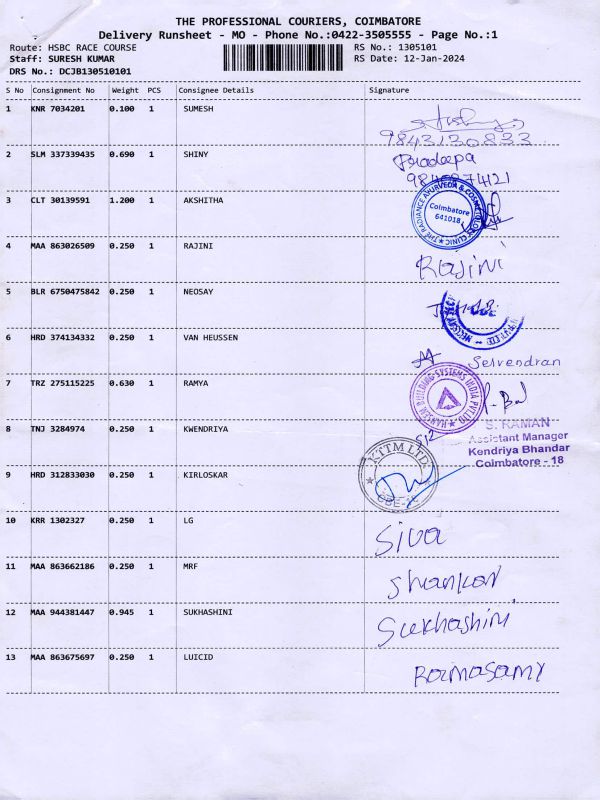 THE PROFESSIONAL COURIERS, COIMBATORE
Delivery Runsheet - MO - Phone No.:0422-3505555 - Page No.:1
Route: HSBC RACE COURSE RS No.: 1305101
Staff: SURESH KUMAR RS Date: 12-Jan-2024
DRS No.: DCJB130510101
S No Consignment No Weight PCS Consignee Details Signature
1 KNR 7034201 0.100 1 SUMESH
9843130833
2 SLM 337339435 0.690 1 SHINY Pradeepa
3 CLT 30139591 1.200 1 AKSHITHA
THE RADIANCE AYURVEDA & COSMETOLOGY CLINIC
Coimbatore
641018
4 MAA 863026509 0.250 1 RAJINI Rajini
5 BLR 6750475842 0.250 1 NEOSAY
6 HRD 374134332 0.250 1 VAN HEUSSEN Selvendran
7 TRZ 275115225 0.630 1 RAMYA
HANSEN BUILDING SYSTEMS INDIA PVT LTD
8 TNJ 3284974 0.250 1 KWENDRIYA S. RAMAN
Assistant Manager
Kendriya Bhandar
Coimbatore - 18
9 HRD 312833030 0.250 1 KIRLOSKAR
10 KRR 1302327 0.250 1 LG Siva
11 MAA 863662186 0.250 1 MRF Shankar
12 MAA 944381447 0.945 1 SUKHASHINI Sukhashini
13 MAA 863675697 0.250 1 LUICID Ramasamy